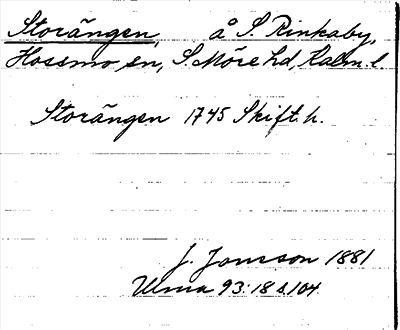 Storängen, å S. Rinkaby,
Hossmo sn, S. Möre hd, Kalm. l.
Storängen 1745 Skift. h.
J. Jonsson 1881
Ulma 93:18 s. 104.